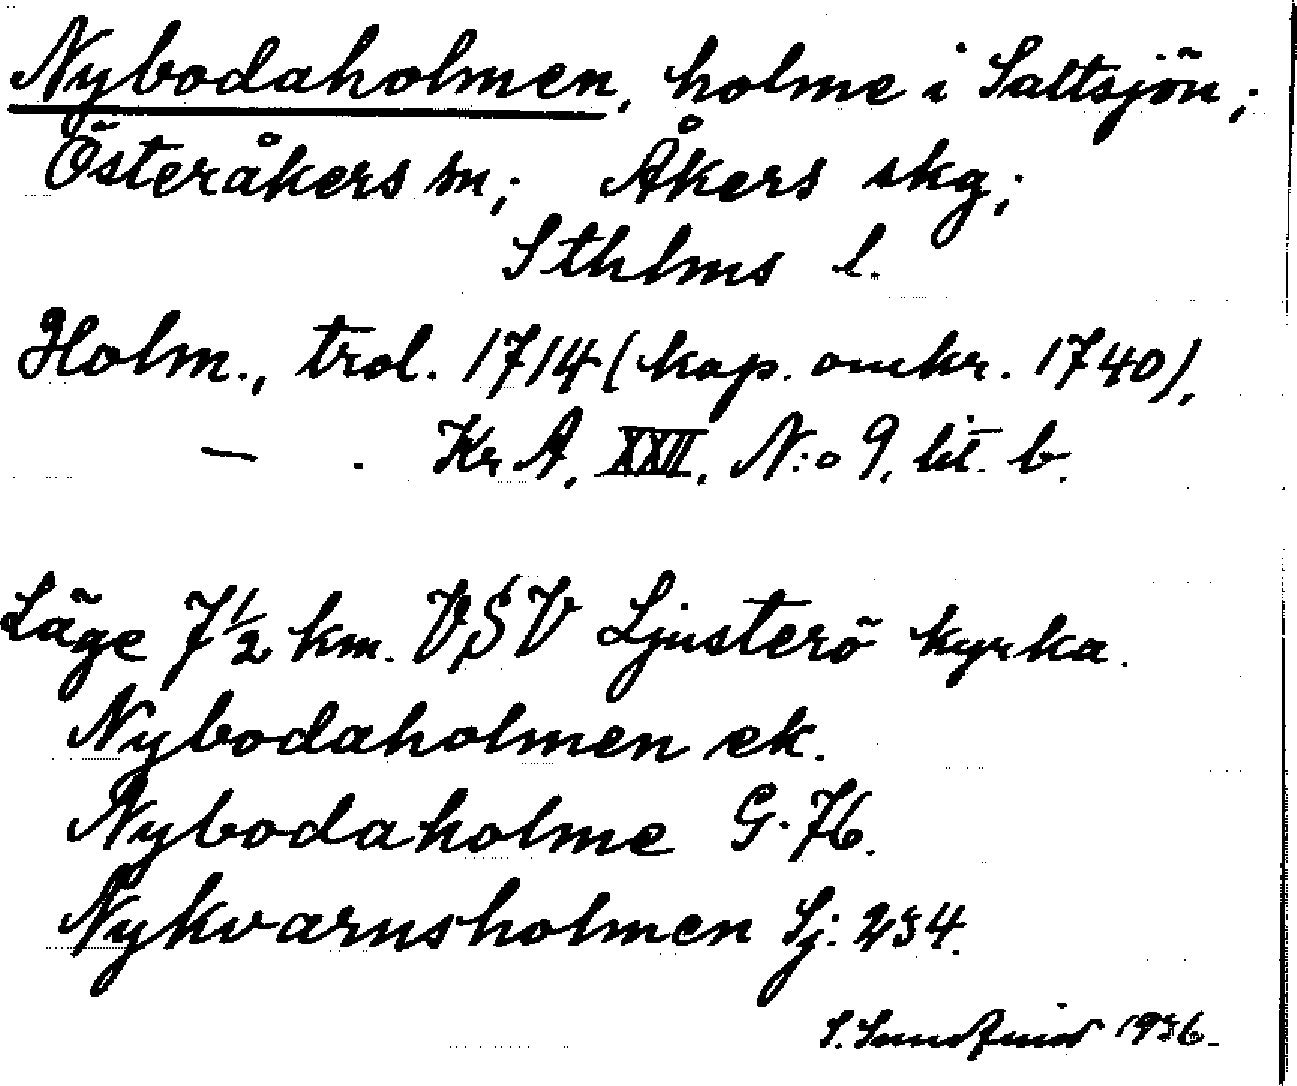 Nybodaholmen, holme i Saltsjön;
Österåkers sn; Åkers skg;
Sthlms l.
Holm., trol. 1714 (kop. omkr. 1740),
— . Kr A, XXII, N:o 9, lit. b.
Läge 7 1/2 km. VSV Ljusterö kyrka.
Nybodaholmen ek.
Nybodaholme G. 76.
Nykvarnsholmen Sj. 234.
S. 1936.